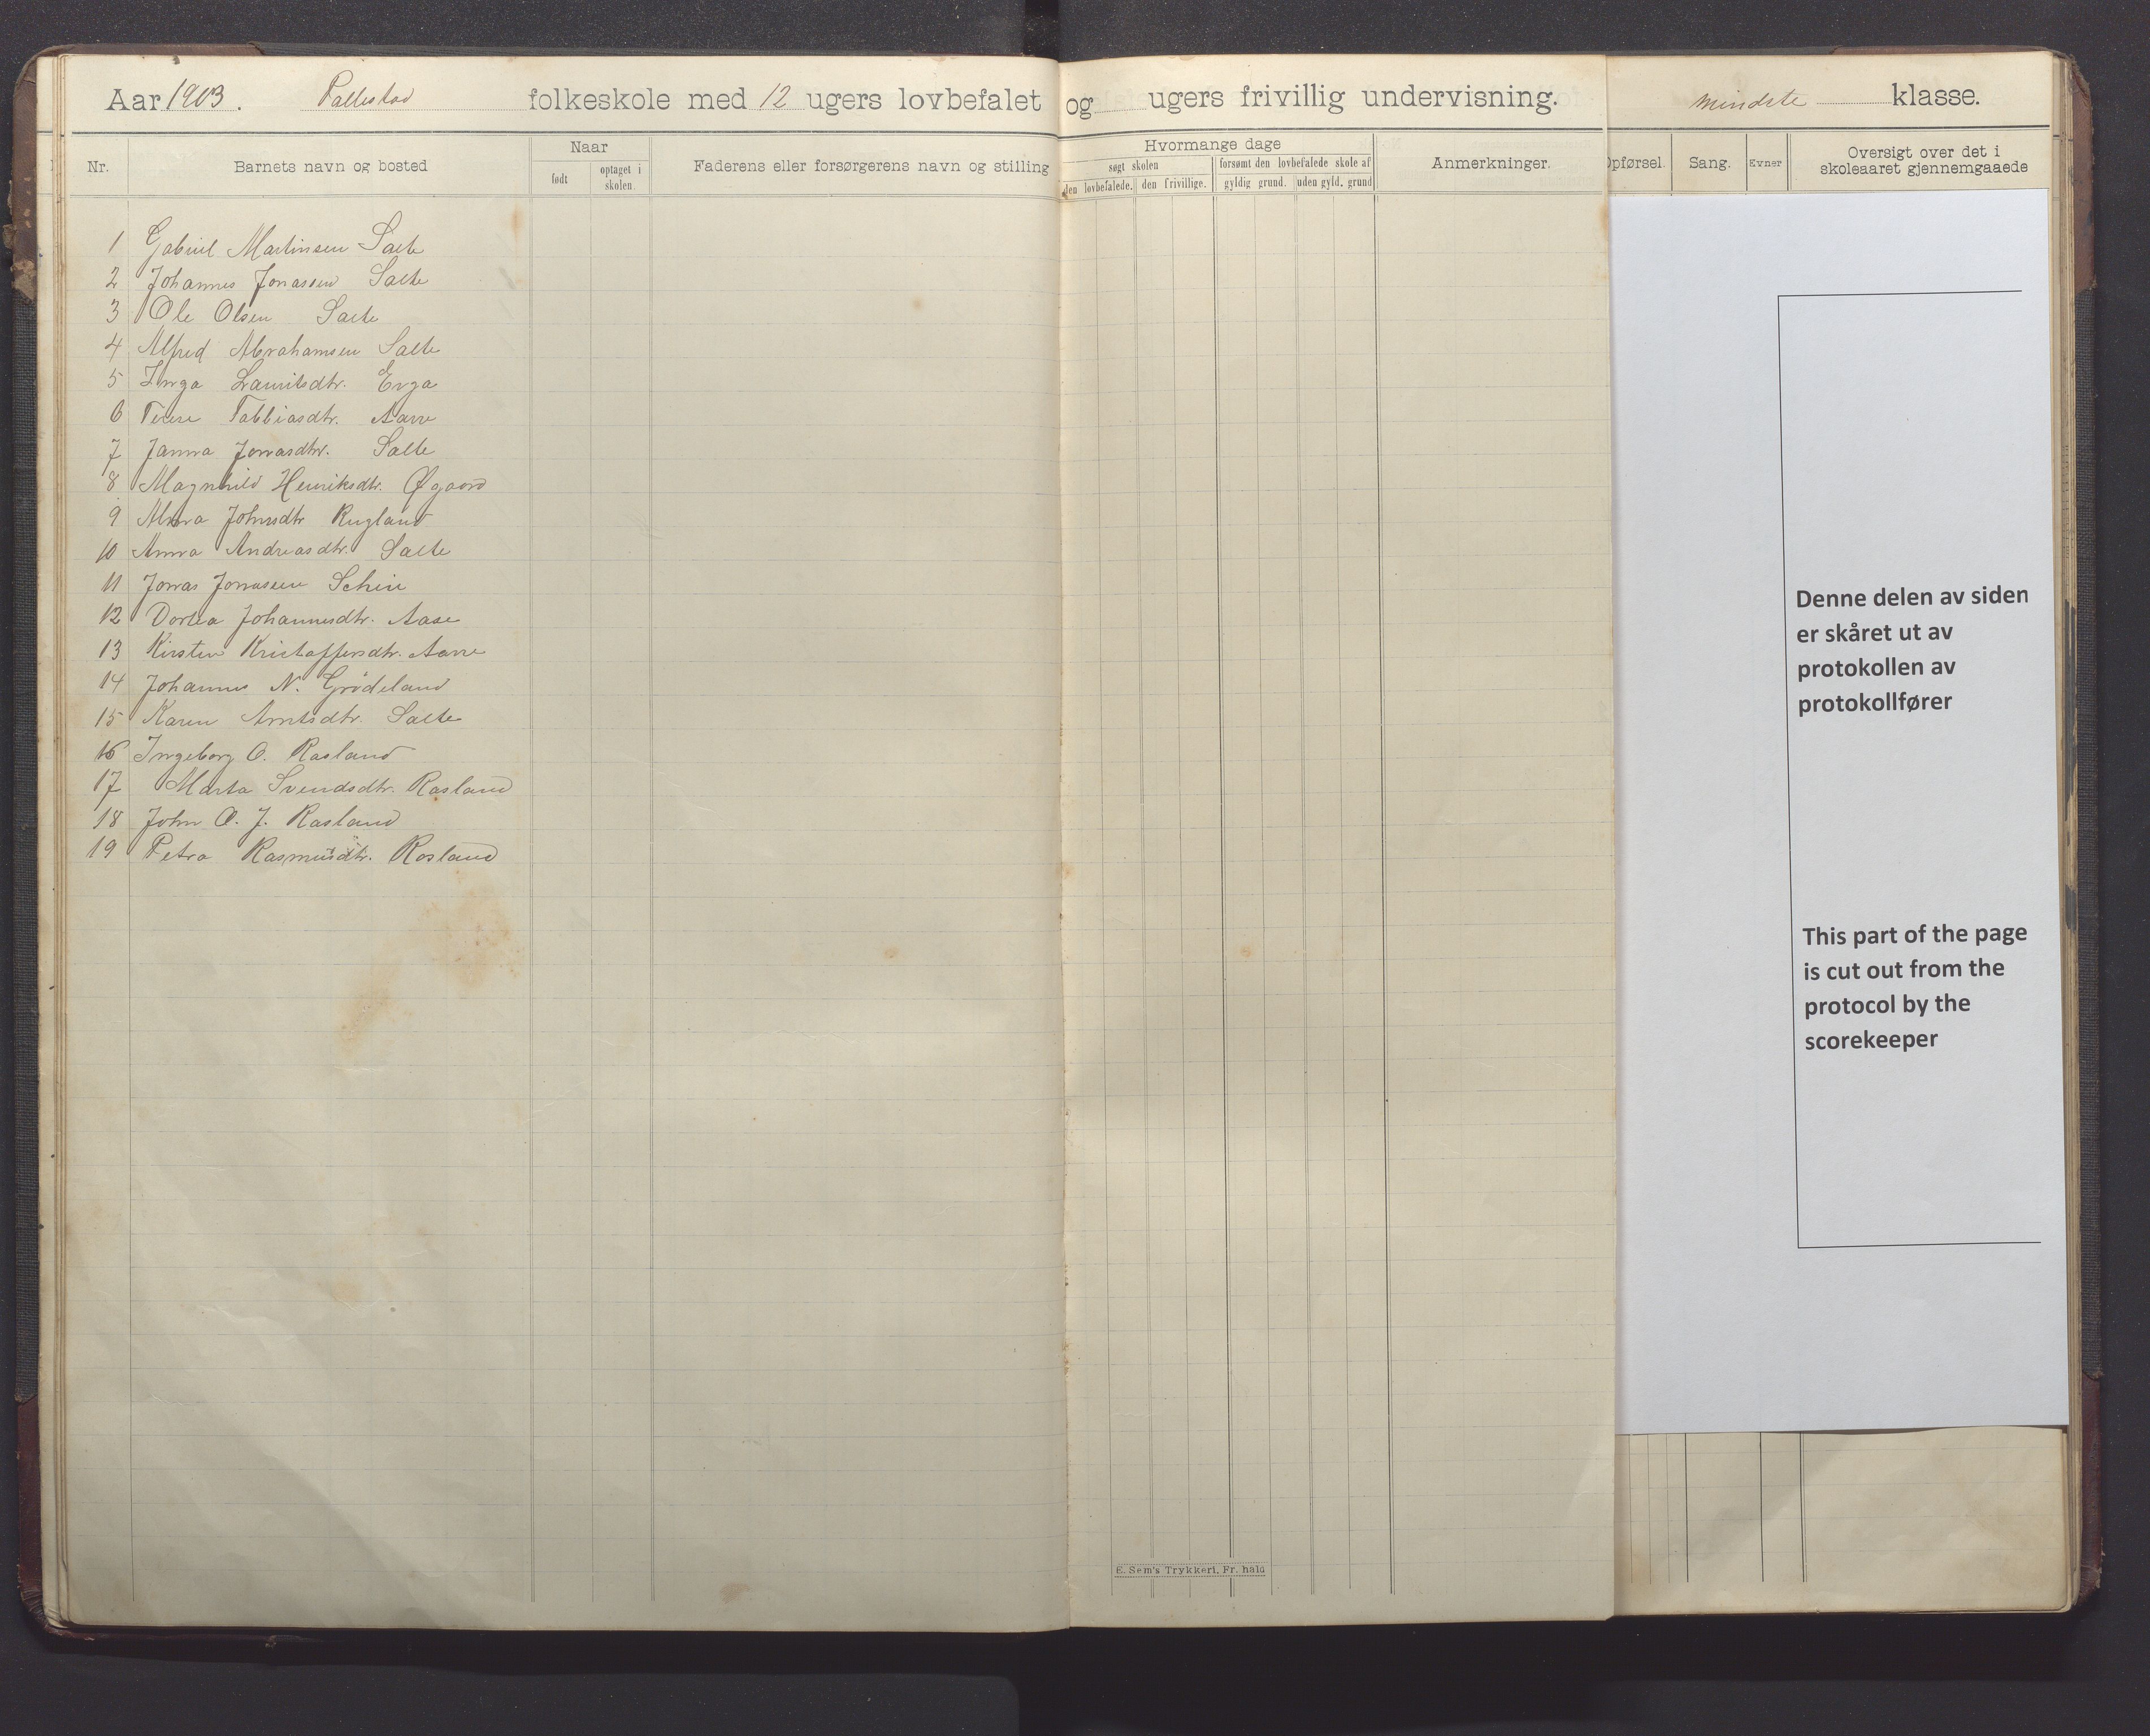 Aar 1903. Pallestad folkeskole med 12 ugers lovbefalet og ugers frivillig undervisning. mindste klasse.
Nr. Barnets navn og bosted Naar født optaget i skolen. Faderens eller forsørgerens navn og stilling Hvormange dage søgt skolen den lovbefalede. den frivillige. forsømt den lovbefalede skole af gyldig grund. uden gyld. grund Anmerkninger. Opførsel. Sang. Evner Oversigt over det i skoleaaret gjennemgaaede
1 Gabriel Martinsen Salte
2 Johannes Jonassen Salte
3 Ole Olsen Salte
4 Alfred Abrahamsen Salte
5 Inga Lauritsdtr. Erga
6 Tobbiasdtr. Aarre
7 Janna Jonasdtr. Salte
8 Magnhild Henriksdtr. Øgaard
9 Johnsdtr Rugland
10 Anna Andreasdtr. Salte
11 Jonas Jonassen
12 Dortea Johannesdtr. Aase
13 Kirsten Kristoffersdtr. Aarre
14 Johannes N. Grødeland
15 Karen Arntsdtr. Salte
16 Ingeborg O. Rosland
17 Marta Svendsdtr. Rosland
18 John O. J. Rosland
19 Petra Rasmusdtr. Rosland
E. Sem's Trykkeri, Fr. hald
Denne delen av siden
er skåret ut av
protokollen av
protokollfører
This part of the page
is cut out from the
protocol by the
scorekeeper